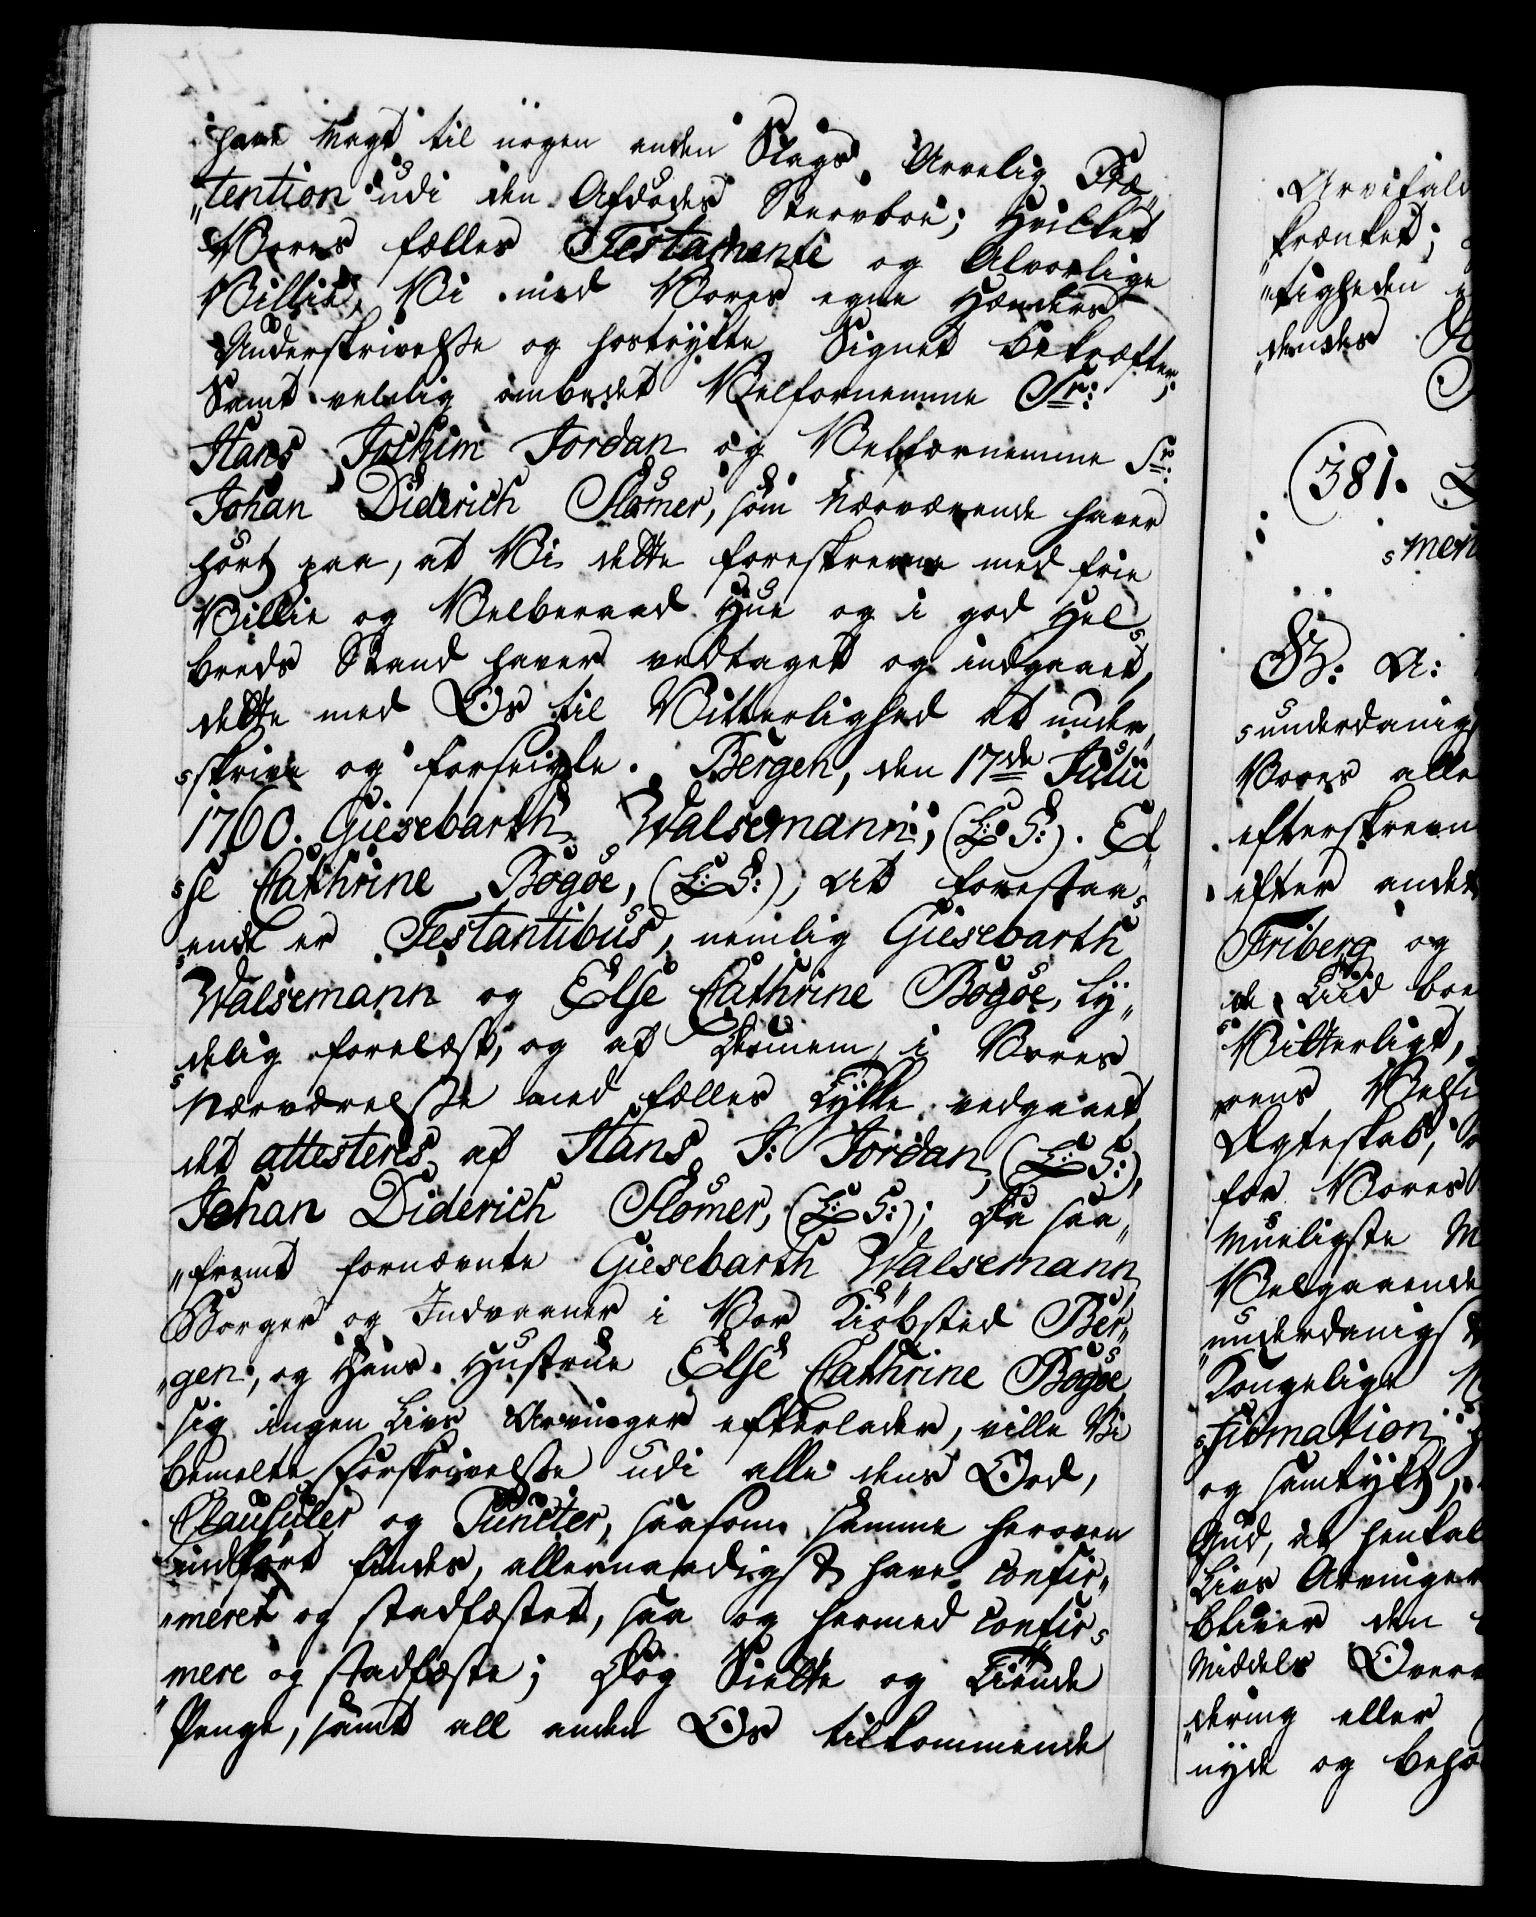 have Magt til nogen anden Slags Arvelig Præ„
„tention udi den Afdødes Stervboe; Hvilket
Vores fælles Testamente og Alvorlige
Villie, Vi med Vores egne Hænders
Underskrivelse og hostrykte Signet bekræfter,
Samt venlig ombedet Velfornemme Sr:
Hans Jochim Jordan og Velfornemme Sr:
Johan Diderich Slømer, som Nærværende haver
hørt paa, at Vi dette foreskrevne med frie
Villie og Velberaad Hue og i god Hel„
breds Stand haver vedtaget og indgaaet,
dette med Os til Vitterlighed at under„
„skrive og forseigle. Bergen, den 17de Julii
1760. Giesebarth Walsemann; (L:S:). El„
„se Cathrine Bøgøe, (L:S:), At forestaa„
„ende er Testantibus, nemlig Giesebarth
Walsemann og Else Cathrine Bøgøe, ty„
„delig forelæst, og af Dennem i Vores
Nærværelse med fælles Lykke vedgaaet,
det attesteres af Hans J: Jordan, (L:S:),
Johan Diderich Slømer, (L:S:); Da saa„
„fremt fornævnte Giesebarth Walsemann,
Borger og Indvaaner i Vor Kiøbsted Ber„
„gen, og Hans Hustrue Else Cathrine Bøgøe
sig ingen Livs Arvinger efterlader, ville Vi
bemelte Forskrivelse udi alle dens Ord,
Clausuler og Puncter, saasom samme heroven
indført findes, allernaadigst have confir„
„meret og stadfæstet, saa og hermed confir„
mere og stadfæste; Dog Siette og Tiende
Penge, samt all anden Os tilkommende
Arvefald
krænket;
„tigheden
dendes
(381.
„men
Gr: A:
„underdanigs
Vores alle
efterskrevn
efter andet
Friberg og
de Lild boe
Vitterligt,
rens Velsi
Ægteskab,
for Vores
Mueligste M
Velgaaende
„underdanigst
Kongelige
„firmation
og samtykt,
Gud, at henkal
Livs Arvinger
bliver den
Middels Over
„dering eller
nyde og beho